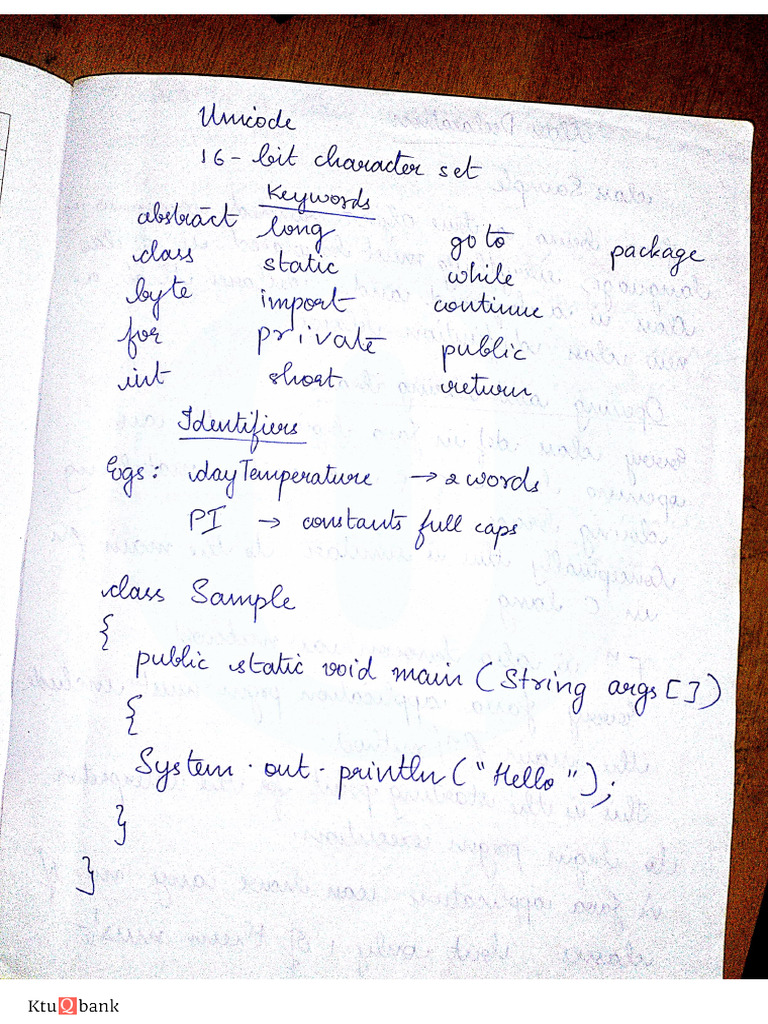 Unicode
16-bit character set
Keywords
abstract long go to package
class static while
byte import continue
for private public
int short return
Identifiers
Egs: dayTemperature → 2 words
PI → constants full caps
class Sample
{
public static void main (String args [])
{
System.out.println("Hello");
}
}
KtuQbank